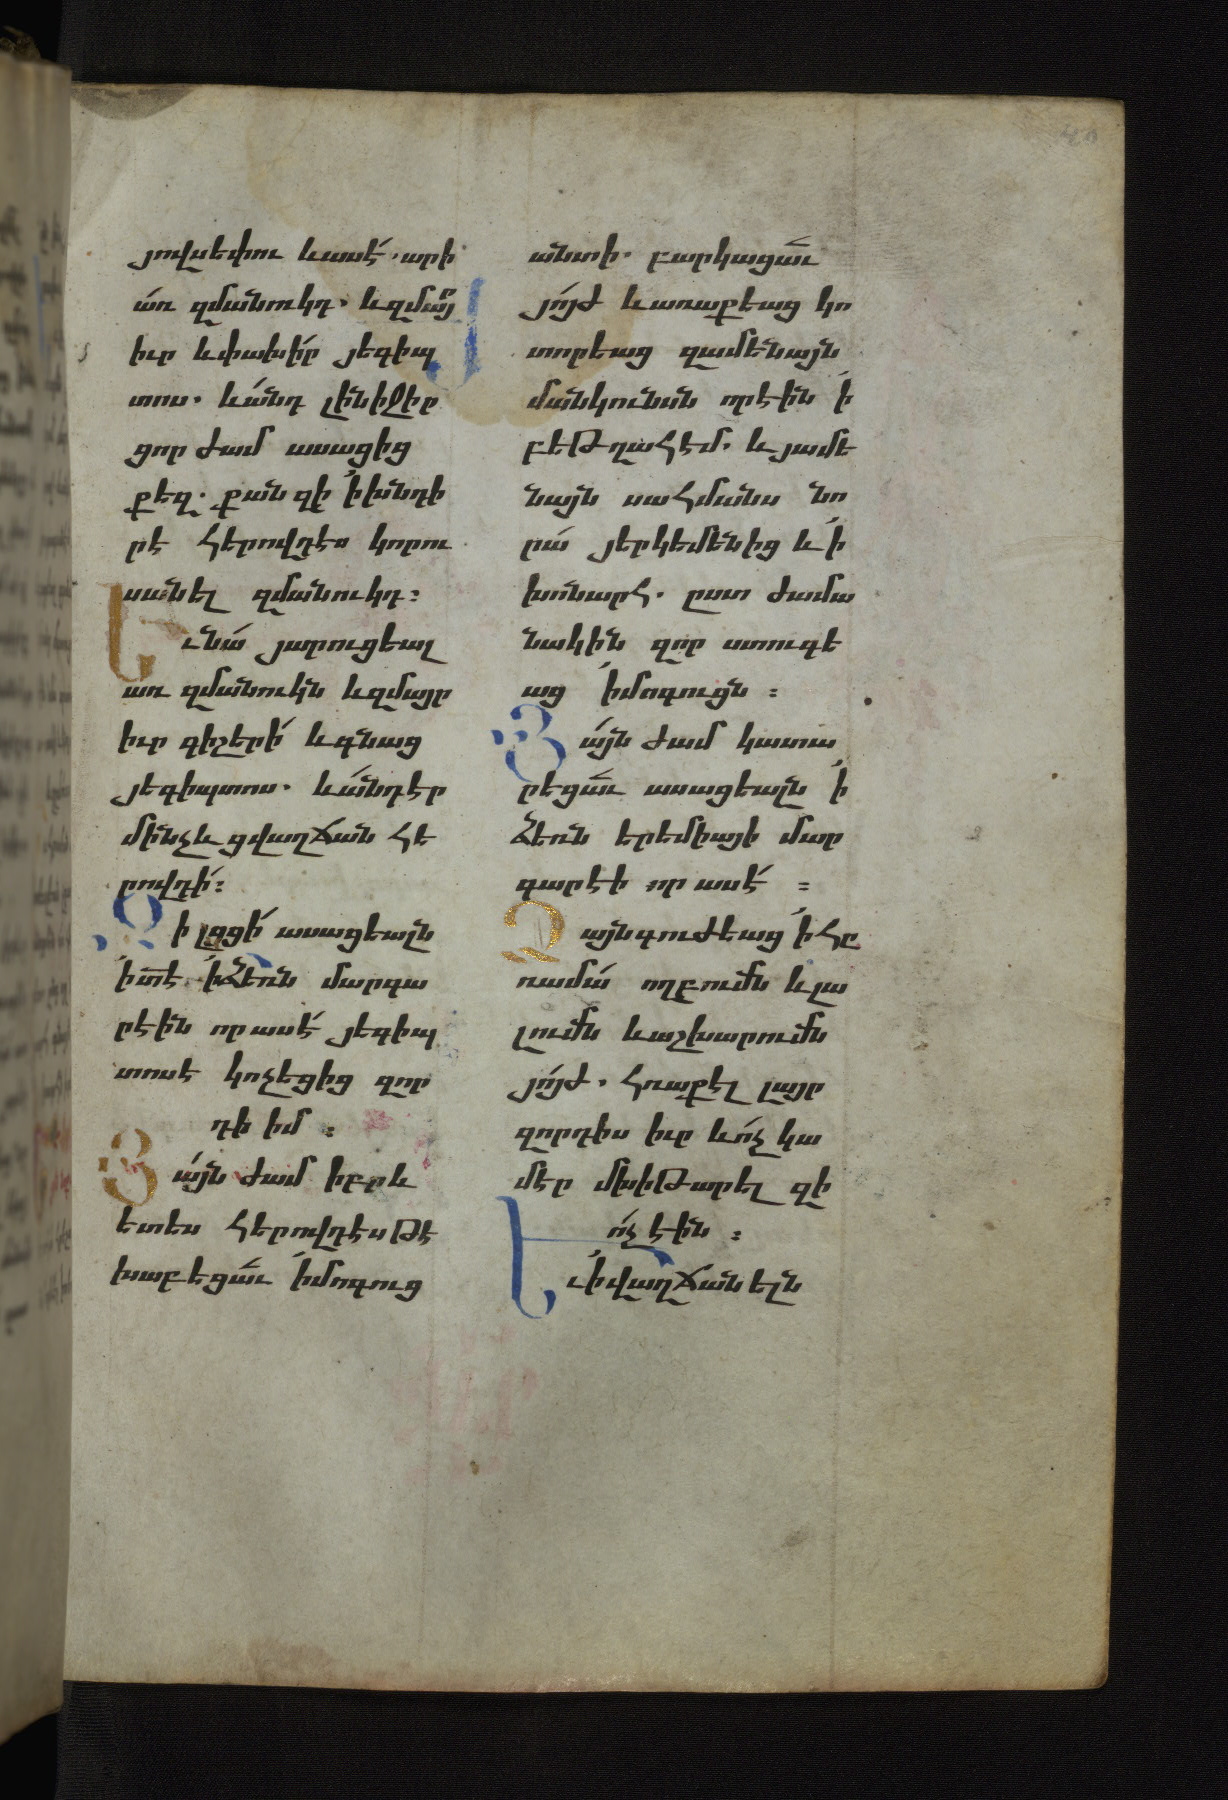 յովսեփու և ասէ՛. արի
ա՛ռ զմանուկդ. և զմա՟յ
իւր և փախի՛ր յեգիպ
տոս. և ա՛նդ լինիջիր
ցոր ժամ ասացից
քեզ. քանզի ի՛ խնդի
րէ հերովդէս կորու
սանել զմանուկդ։
Եւ նա՛ յարուցեալ
առ զմանուկն և զմայր
իւր գիշերի՛ և գնաց
յեգիպտոս. և ա՛նդ էր
մինչև ցվաղճան հե
րովդի՛։
Զի լցցի՛ ասացեալն
ի տ՟է ի՛ ձեռն մարգա
րէին որ ասէ՛ յեգիպ
տոսէ կոչեցից զոր
դի իմ։
Յա՛յն ժամ իբրև
ետես հերովդէս թէ
խաբեցա՟ւ ի՛ մոգուց
անտի. բարկացա՟ւ
յո՛յժ և առաքեաց կո
տորեաց զամենայն
մանկունսն որ էին ի՛
բեթղահէմ. և յամե
նայն սահմանս նո
րա՛ յերկեմենից և ի՛
խոնարհ. ըստ ժամա
նակին զոր ստուգե
աց ի՛ մոգուցն։
Յա՛յն ժամ կատա
րեցա՟ւ ասացեալն ի՛
ձեռն երեմիայի մար
գարէի որ ասէ՛։
Ձայն գուժեաց ի՛ հը
ռամա՛ ողբումն և լա
լումն և աշխարումն
յո՛յժ. հռաքէլ լայր
զորդիս իւր և ո՛չ կա
մէր մխիթարել զի
ո՛չ էին։
Եւ ի՛ վաղճանելն